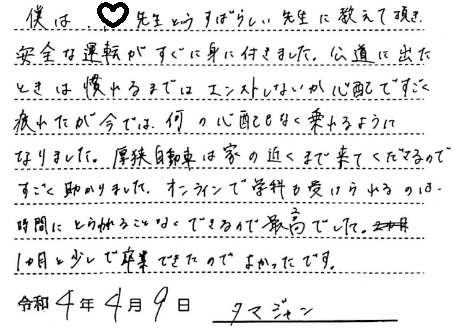 僕は、♡先生というすばらしい先生に教えて頂き
安全な運転がすぐに身に付きました。公道に出た
ときは慣れるまではエンストしないか心配ですごく
疲れたが今では、何の心配もなく乗れるように
なりました。厚狭自動車は家の近くまで来てくださるので
すごく助かりました。オンラインで学科も受けられるのは、
時間にとらわれることなくできるので最高でした。
1ヵ月と少しで卒業できたのでよかったです。
令和4年4月9日 タマジャン